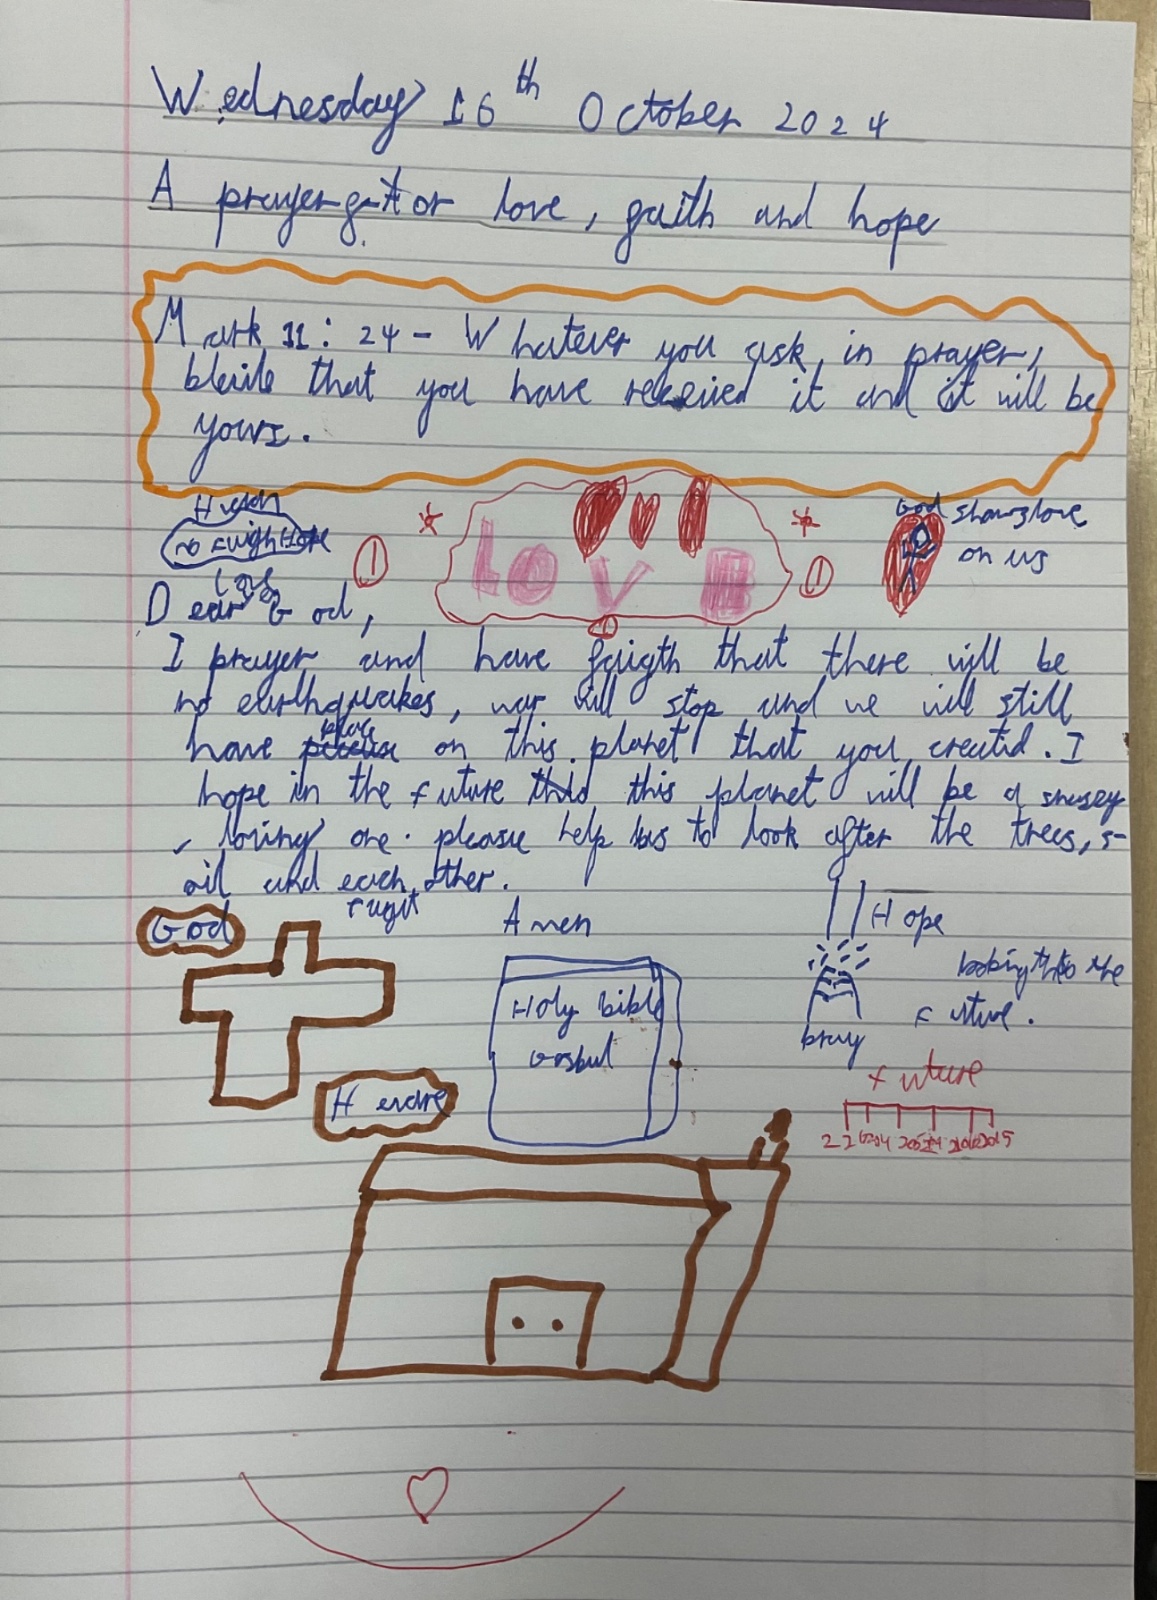 Wednesday 16th October 2024
A prayer for love, faith and hope
Mark 11: 24 - Whatever you ask in prayer,
bleive that you have received it and it will be
yours.
God shows love
on us
LOVE
Dear God,
I prayer and have faigth that there will be
no earthquakes, war will stop and we will still
have place on this planet that you created. I
hope in the future this planet will be a
loving one. please help us to look after the trees, s-
oil and each other.
God
Amen
Hope
looking into the
future.
Holy bible
Gosbul
pray
future